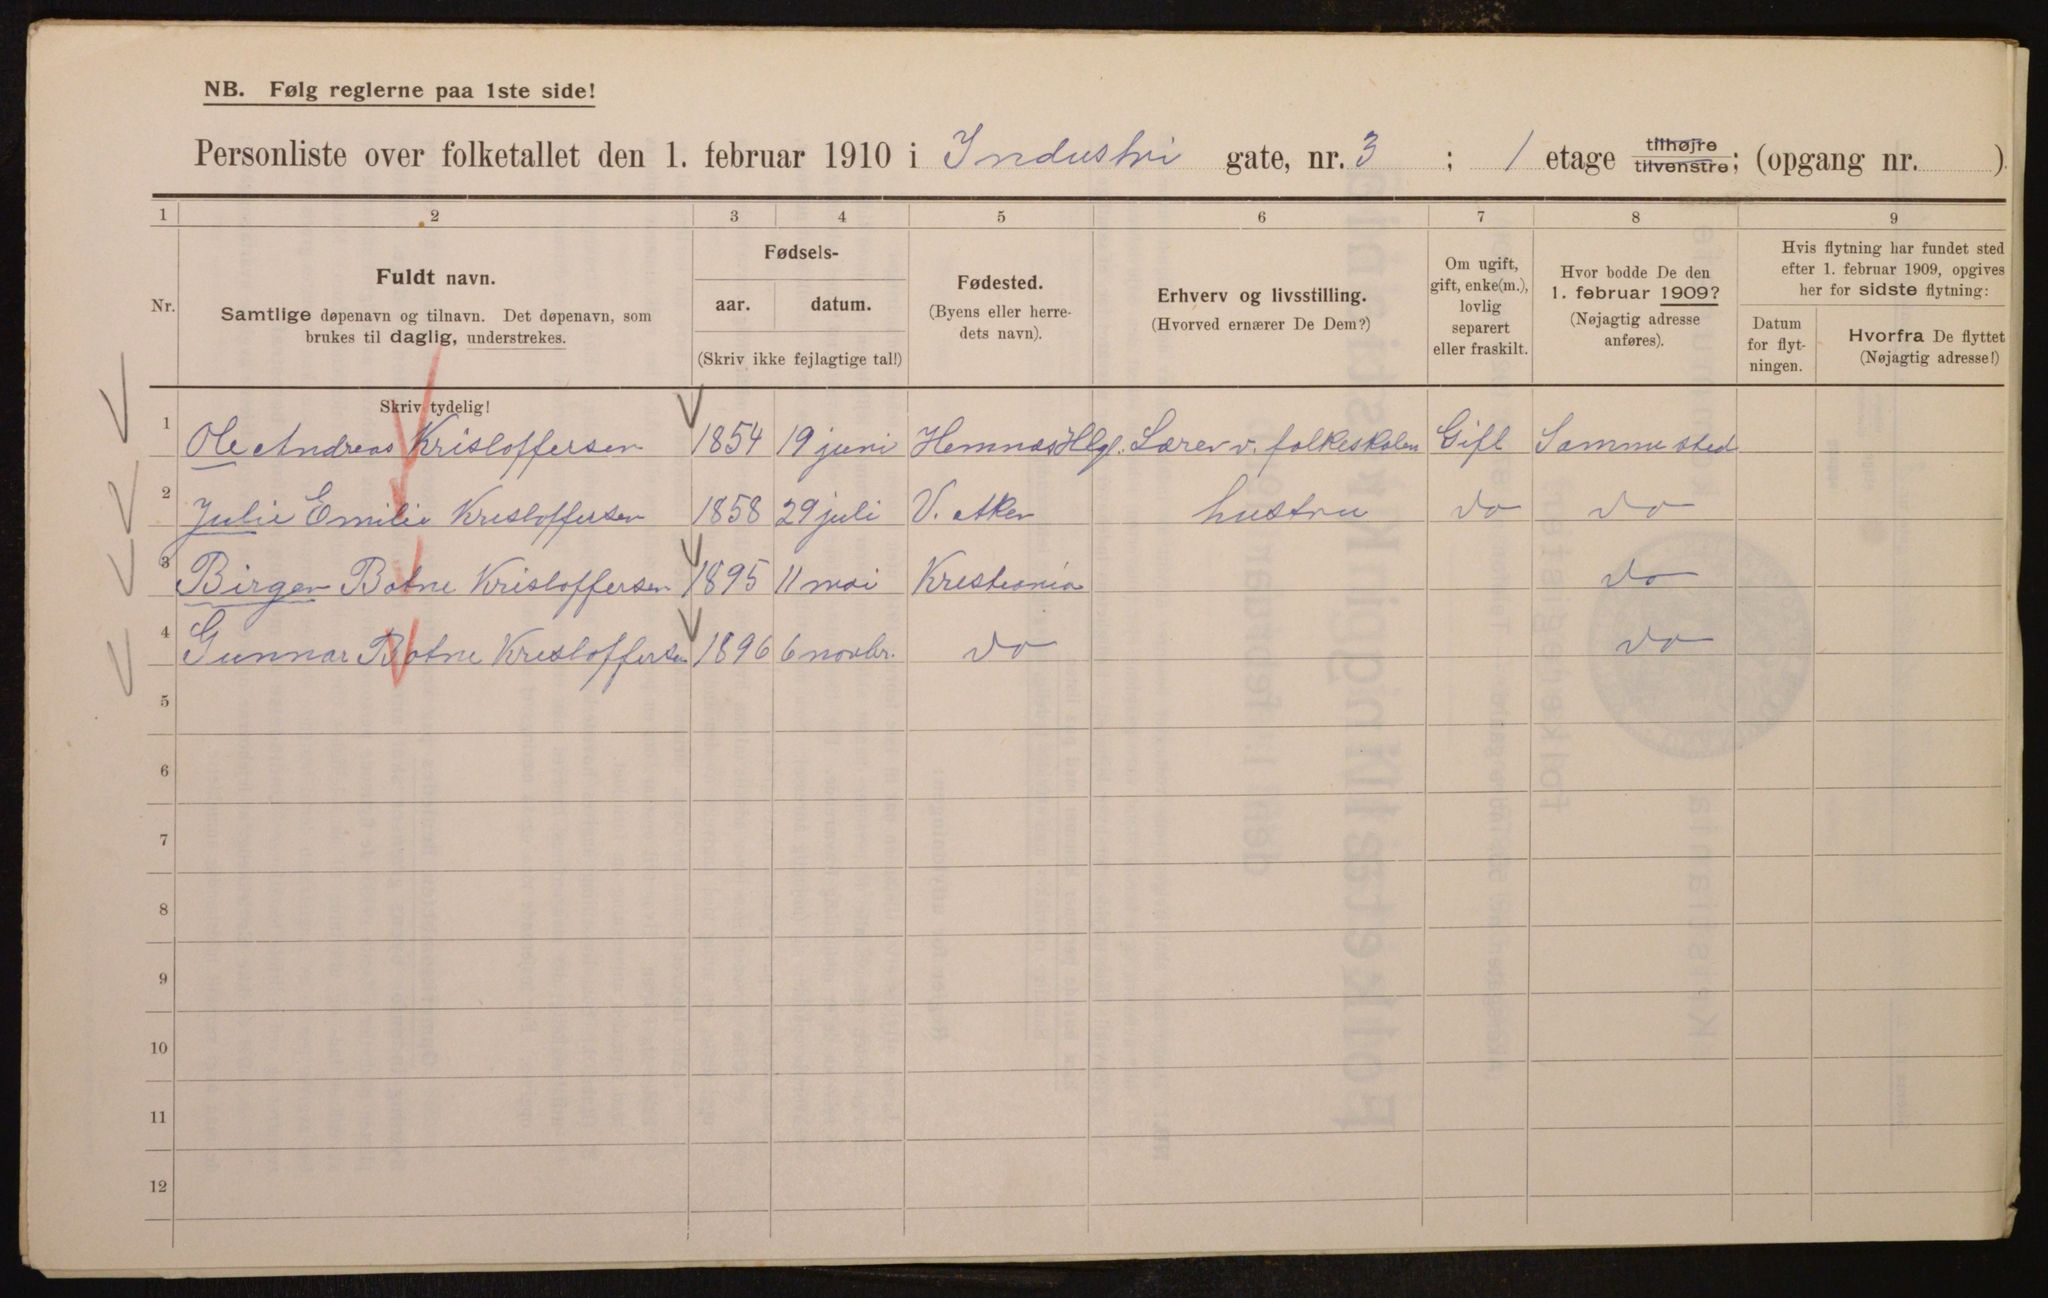 NB. Følg reglerne paa 1ste side!
Personliste over folketallet den 1. februar 1910 i Industri gate, nr. 3 ; 1 etage tilhøjre tilvenstre; (opgang nr. )
1 2 3 4 5 6 7 8 9
Nr.
Fuldt navn.
Samtlige døpenavn og tilnavn. Det døpenavn, som
brukes til daglig, understrekes.
Fødsels-
aar. datum.
(Skriv ikke fejlagtige tal!)
Fødested.
(Byens eller herre-
dets navn).
Erhverv og livsstilling.
(Hvorved ernærer De Dem?)
Om ugift,
gift, enke(m.),
lovlig
separert
eller fraskilt.
Hvor bodde De den
1. februar 1909?
(Nøjagtig adresse
anføres).
Hvis flytning har fundet sted
efter 1. februar 1909, opgives
her for sidste flytning:
Datum
for flyt-
ningen.
Hvorfra De flyttet
(Nøjagtig adresse!)
Skriv tydelig!
1 Ole Andreas Kristoffersen 1854 19 juni Hemnæs Hlgl. Lærer v. folkeskolen Gift Samme sted
2 Julie Emilie Kristoffersen 1858 29 juli V. Aker hustru do do
3 Birger Botne Kristoffersen 1895 11 mai Kristiania do
4 Gunnar Botne Kristoffersen 1896 6 novbr. do do
5
6
7
8
9
10
11
12